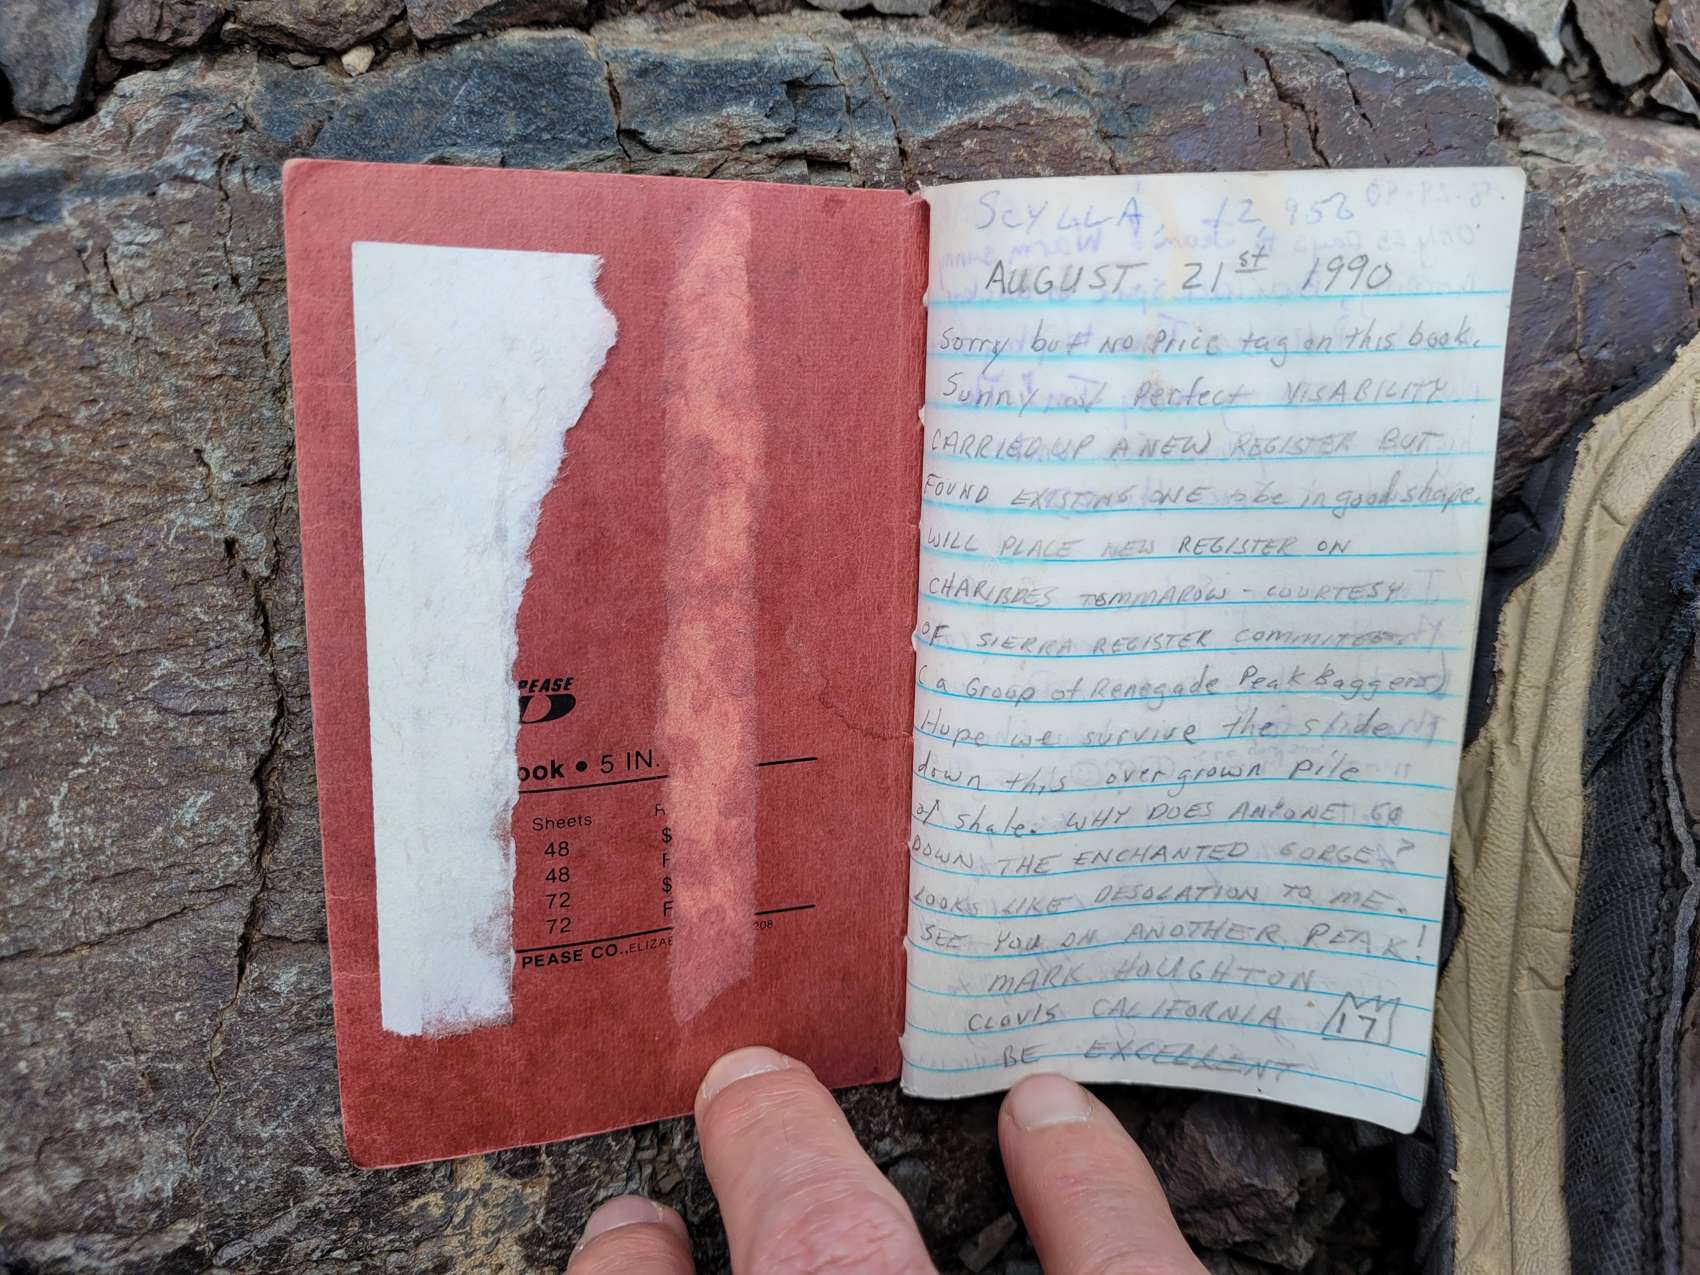 PEASE
ook • 5 IN.
Sheets
48 $
48 F
72 $
72 F
PEASE CO., ELIZA 208
SCYLLA 12,956
AUGUST 21st 1990
Sorry but no Price tag on this book.
Sunny w/ Perfect VISABILITY
CARRIED UP A NEW REGISTER BUT
FOUND EXISTING ONE to be in good shape.
WILL PLACE NEW REGISTER ON
CHARIBDES TOMMAROW - COURTESY
OF SIERRA REGISTER COMMITEE.
(a Group of Renegade Peak Baggers)
Hope we survive the slide
down this over grown pile
of shale. WHY DOES ANYONE GO
DOWN THE ENCHANTED GORGE?
LOOKS LIKE DESOLATION TO ME.
SEE YOU ON ANOTHER PEAK!
MARK HOUGHTON
CLOVIS CALIFORNIA 17
BE EXCELLENT